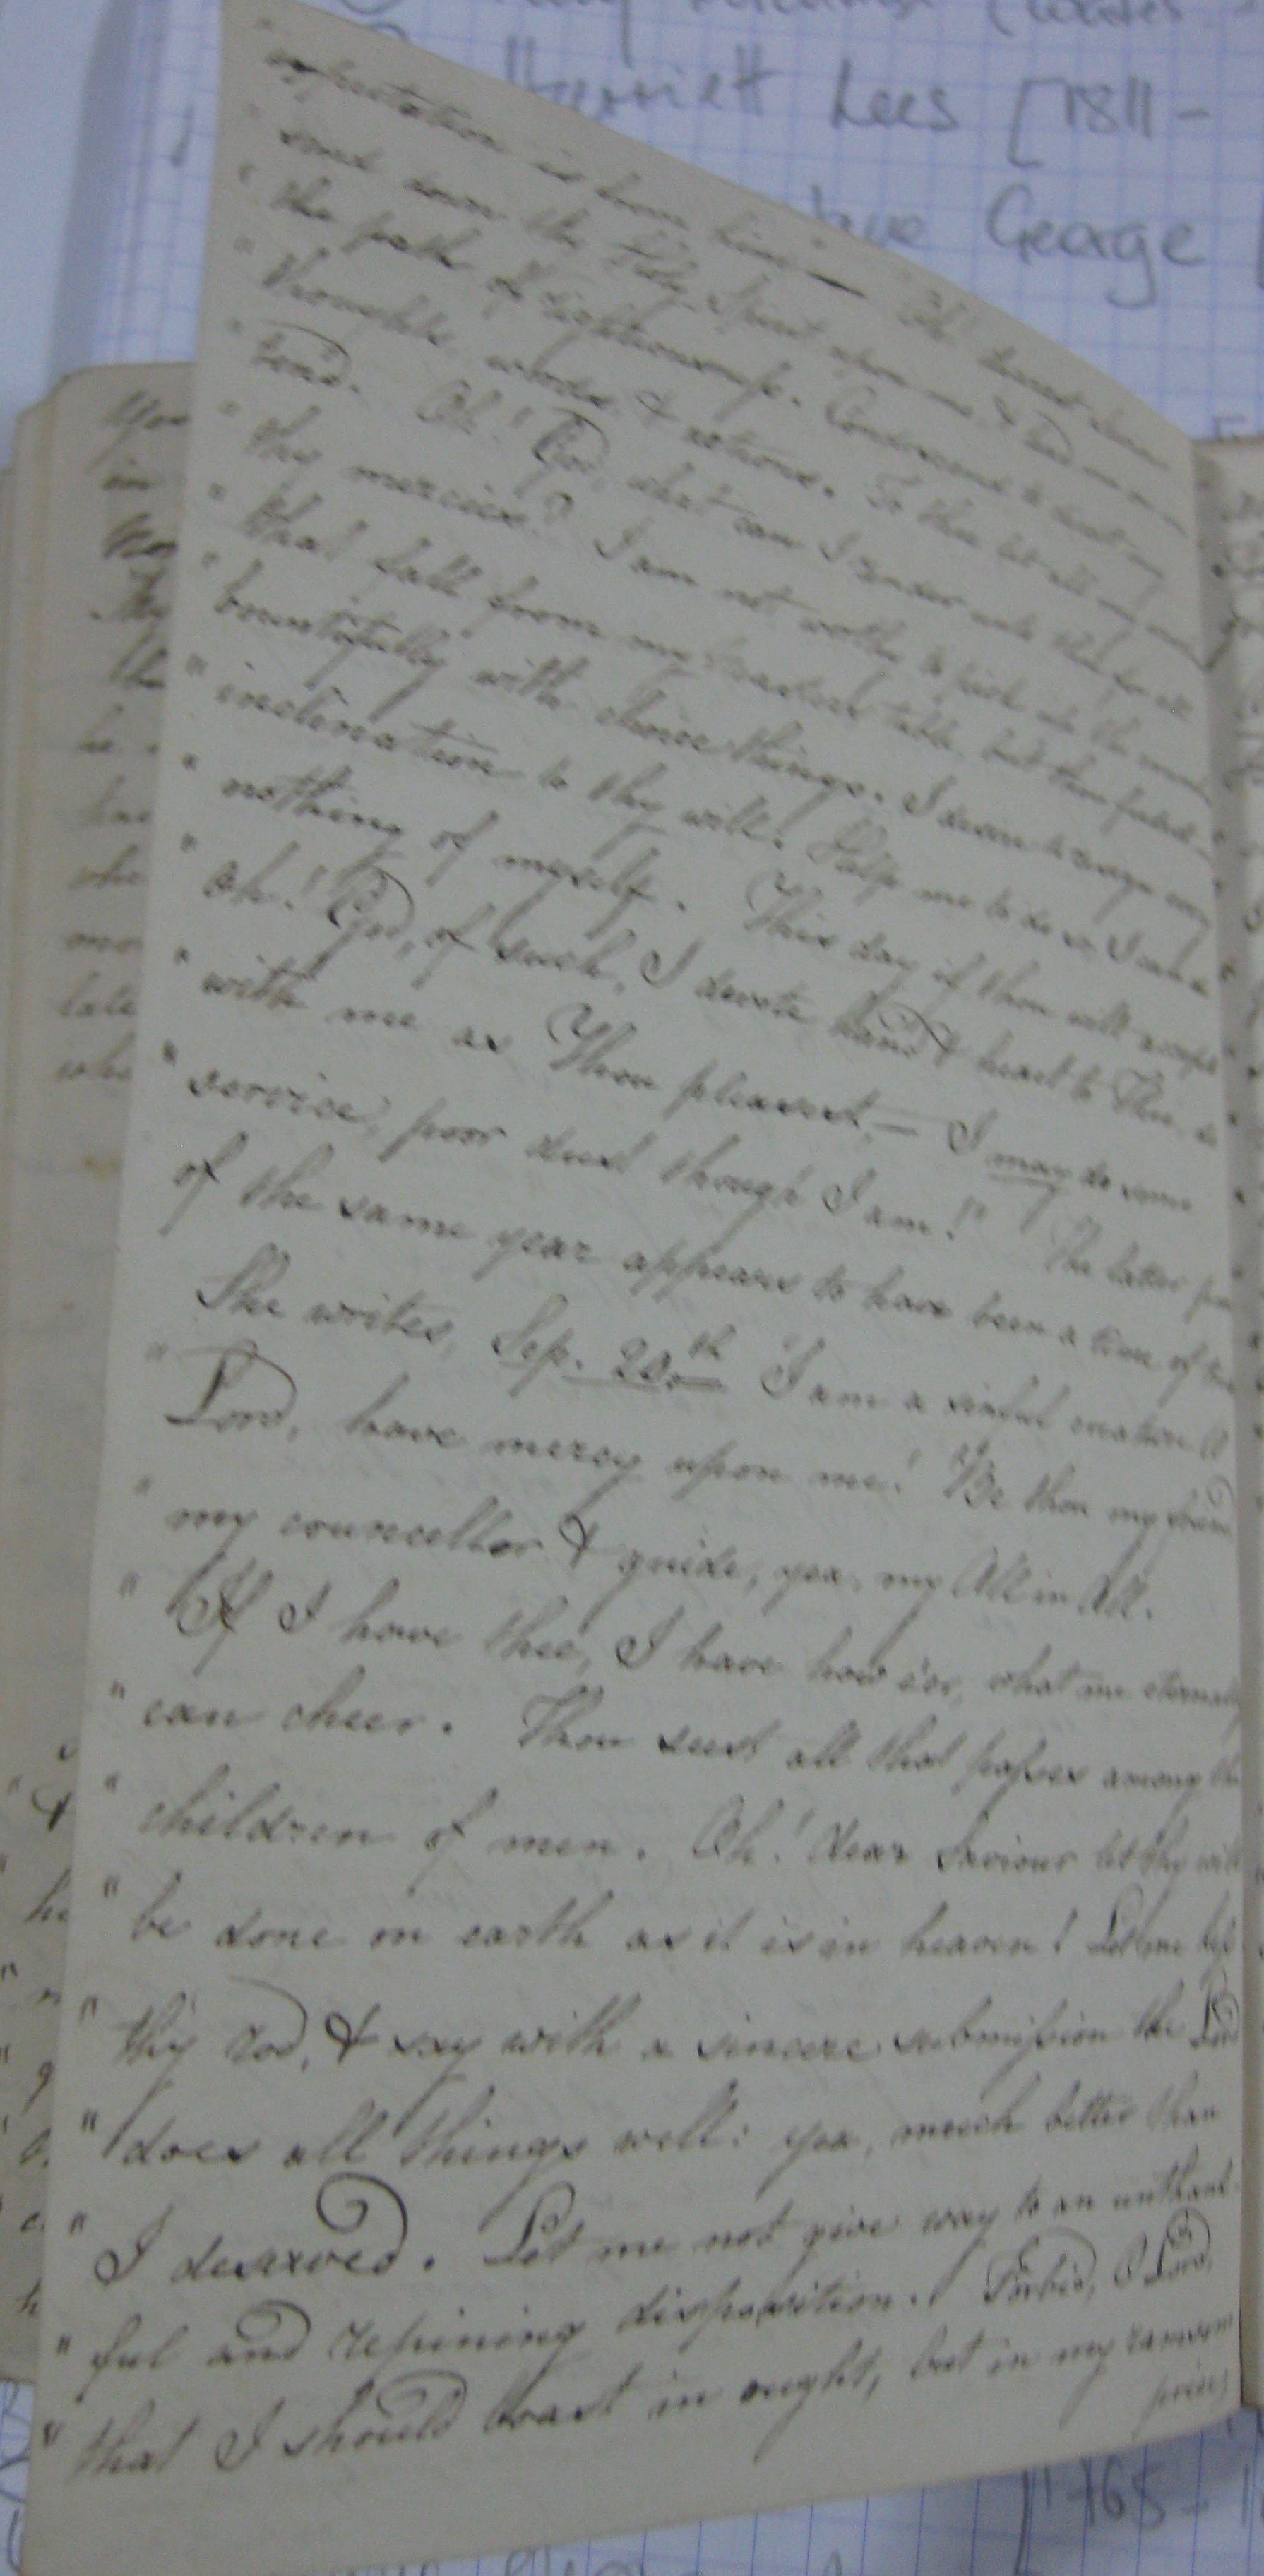 Harriett Lees [1811-
George [
" expectation is from him — Oh! Saviour
" send down the Holy Spirit upon me & lead me in
" the path of righteousness. Command
" thoughts, words & actions. To thee let all my
" tend. Oh! God, what can I render unto thee for all
" thy mercies? I am not worthy to pick up the
" that fall from my master's table, but thou
" bountifully with choice things. I desire to resign my
" inclination to thy will. Help me to do so, I can do
" nothing of myself. This day if thou wilt accept
" Oh! God, of such, I devote hand & heart to Thee, do
" with me as Thou pleasest, — I may do some
" service, poor dust though I am!" The latter
of the same year appears to have been a time of
She writes, Sep. 20.th "I am a sinful creature O
" Lord, have mercy upon me! Be thou my friend
" my councellor & guide, yea, my All in All.
" If I have thee, I have how e'er, what me eternally
" can cheer. Thou seest all that passes among the
" children of men. Oh! dear Saviour let thy will
" be done on earth as it is in heaven! Let me kiss
" thy rod, & say with a sincere submission the Lord
" does all things well: yea, much better than
" I deserved. Let me not give way to an unthank-
" ful and repining disposition. Forbid, O Lord,
" that I should boast in ought, but in my ransom
price
1765-